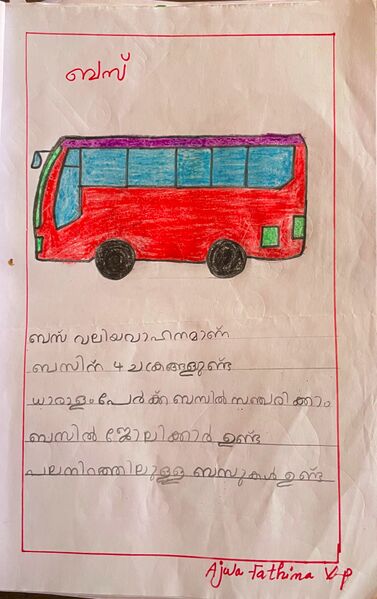 ബസ്
ബസ് വലിയവാഹനമാണ്
ബസിന് 4 ചക്രങ്ങളുണ്ട്
ധാരാളംപേർക്ക് ബസിൽ സഞ്ചരിക്കാം
ബസിൽ ജോലിക്കാർ ഉണ്ട്
പലനിറത്തിലുള്ള ബസുകൾ ഉണ്ട്
Ajwa Fathima